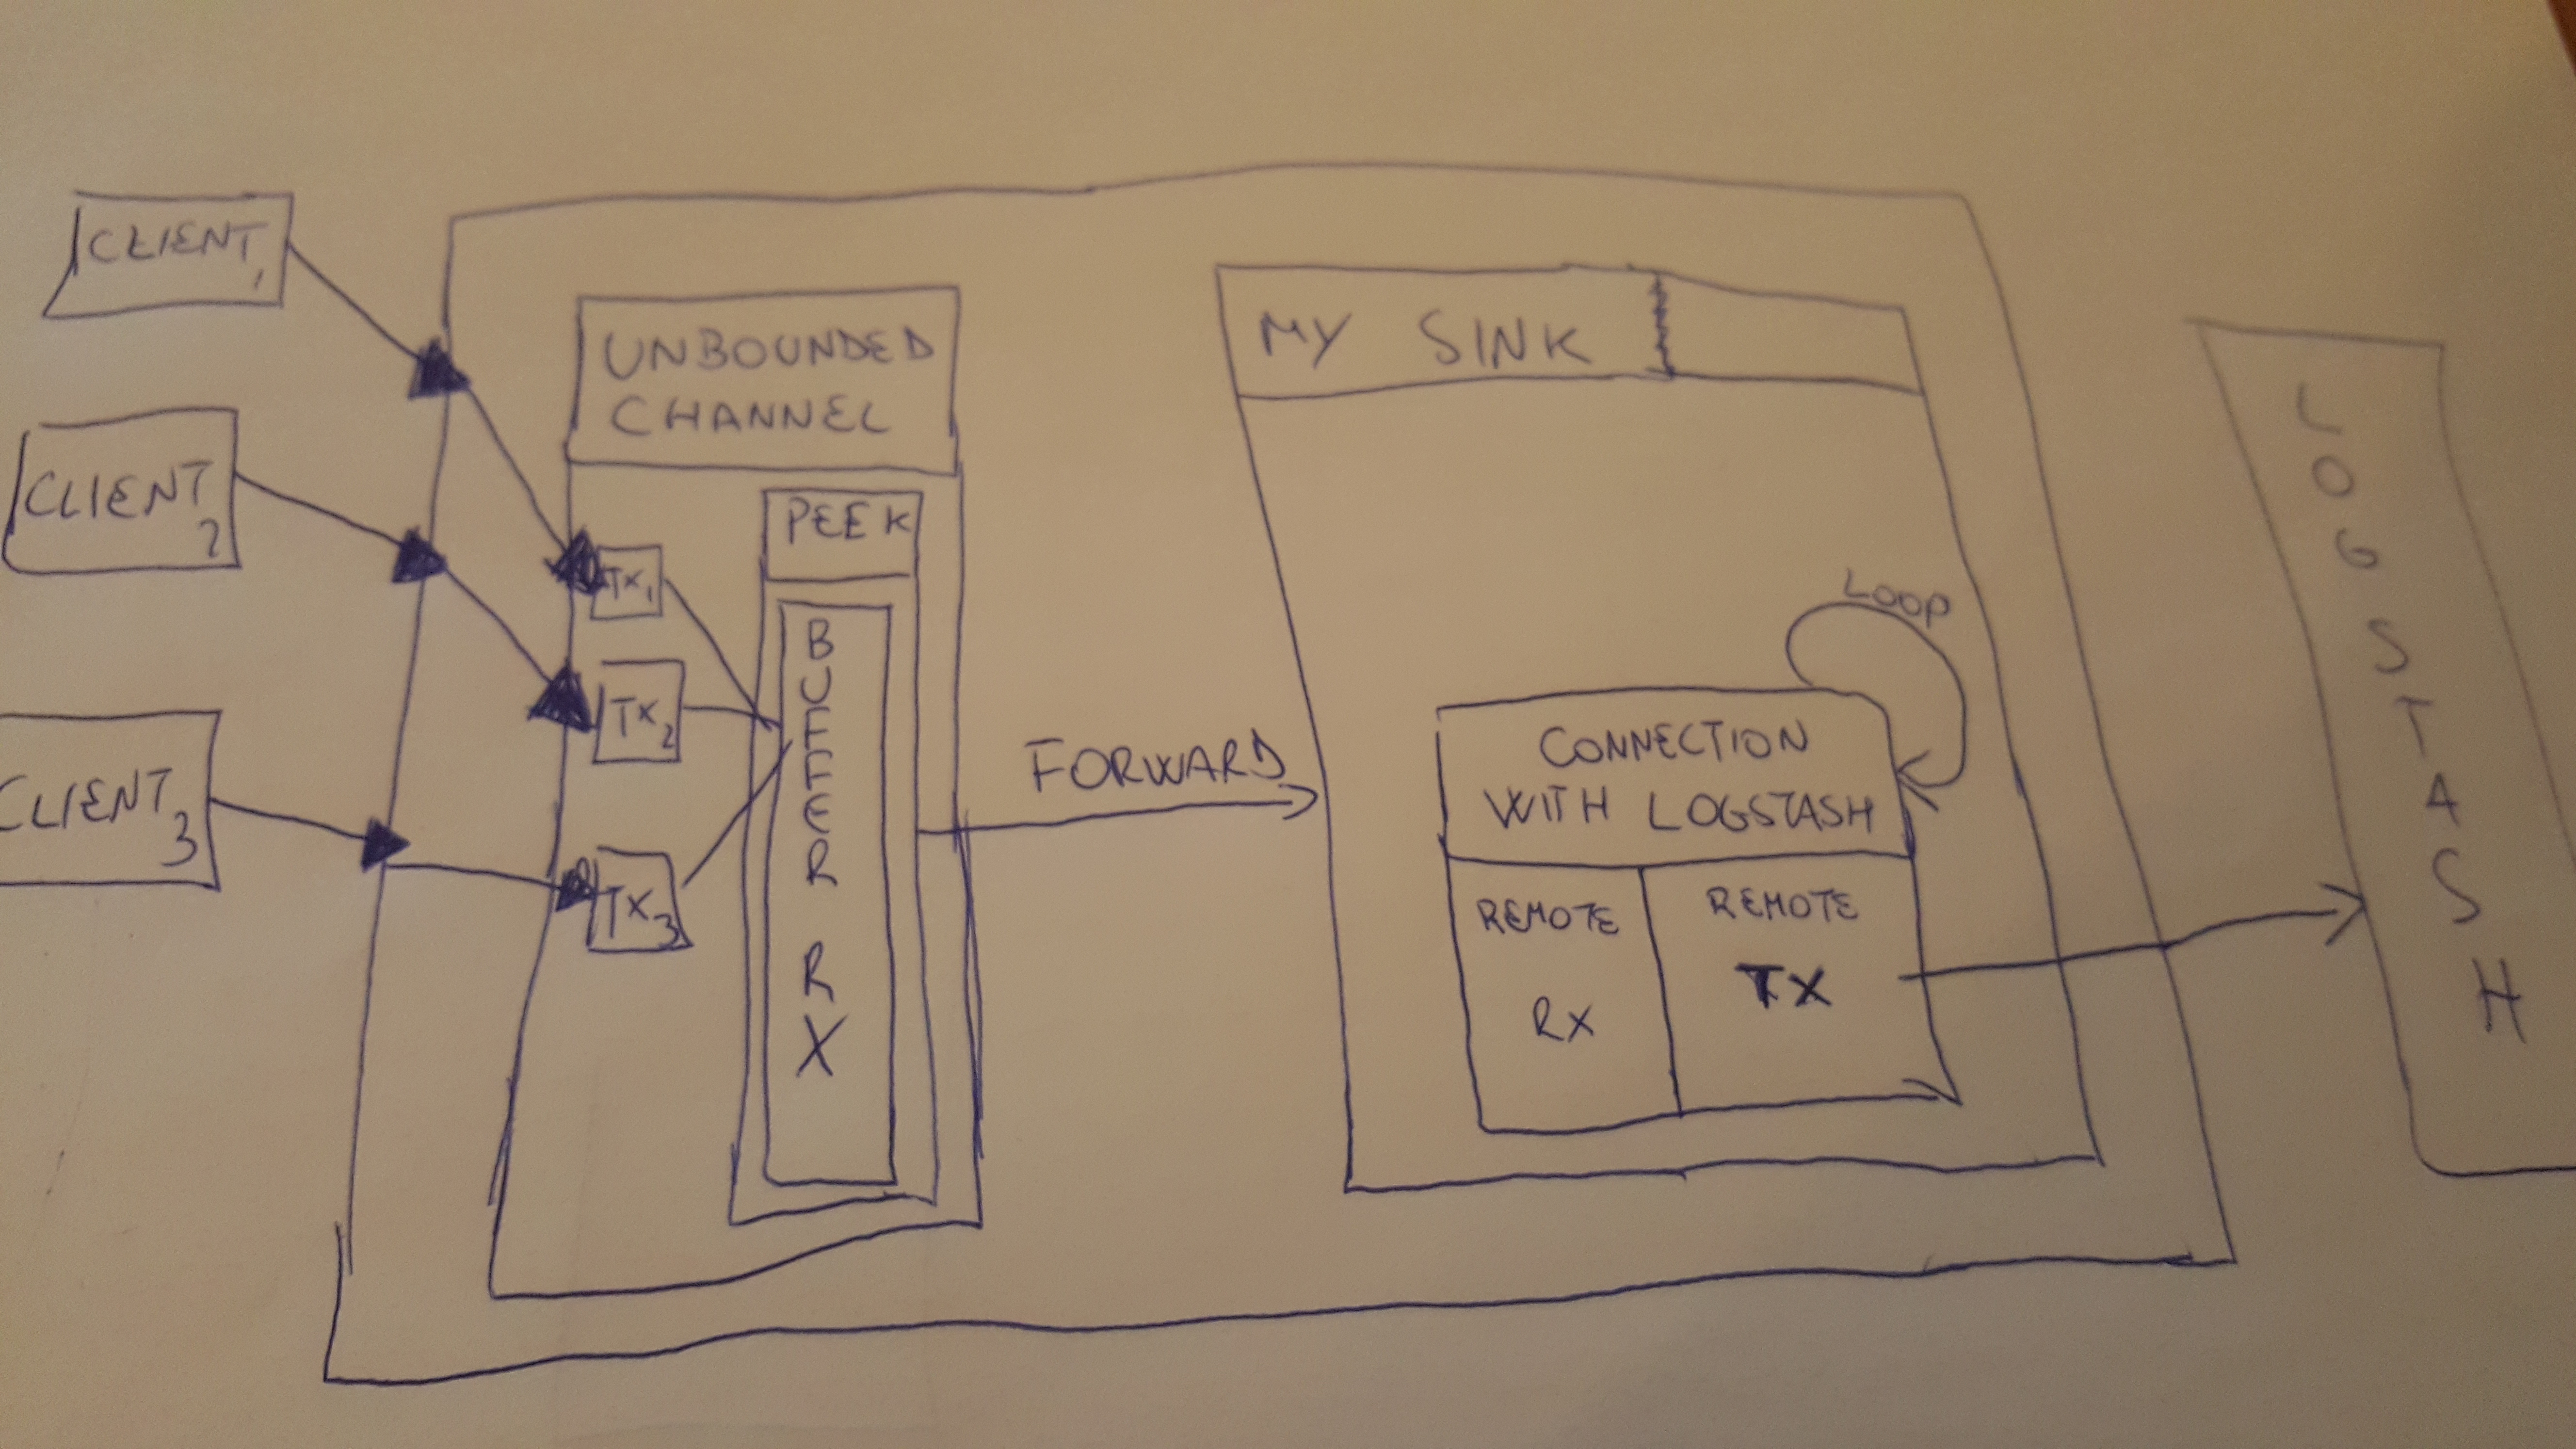 CLIENT
1
CLIENT
2
CLIENT
3
UNBOUNDED
CHANNEL
TX1
TX2
TX3
PEEK
BUFFER RX
FORWARD
MY SINK
LOOP
CONNECTION
WITH LOGSTASH
REMOTE
RX
REMOTE
TX
LOGSTASH